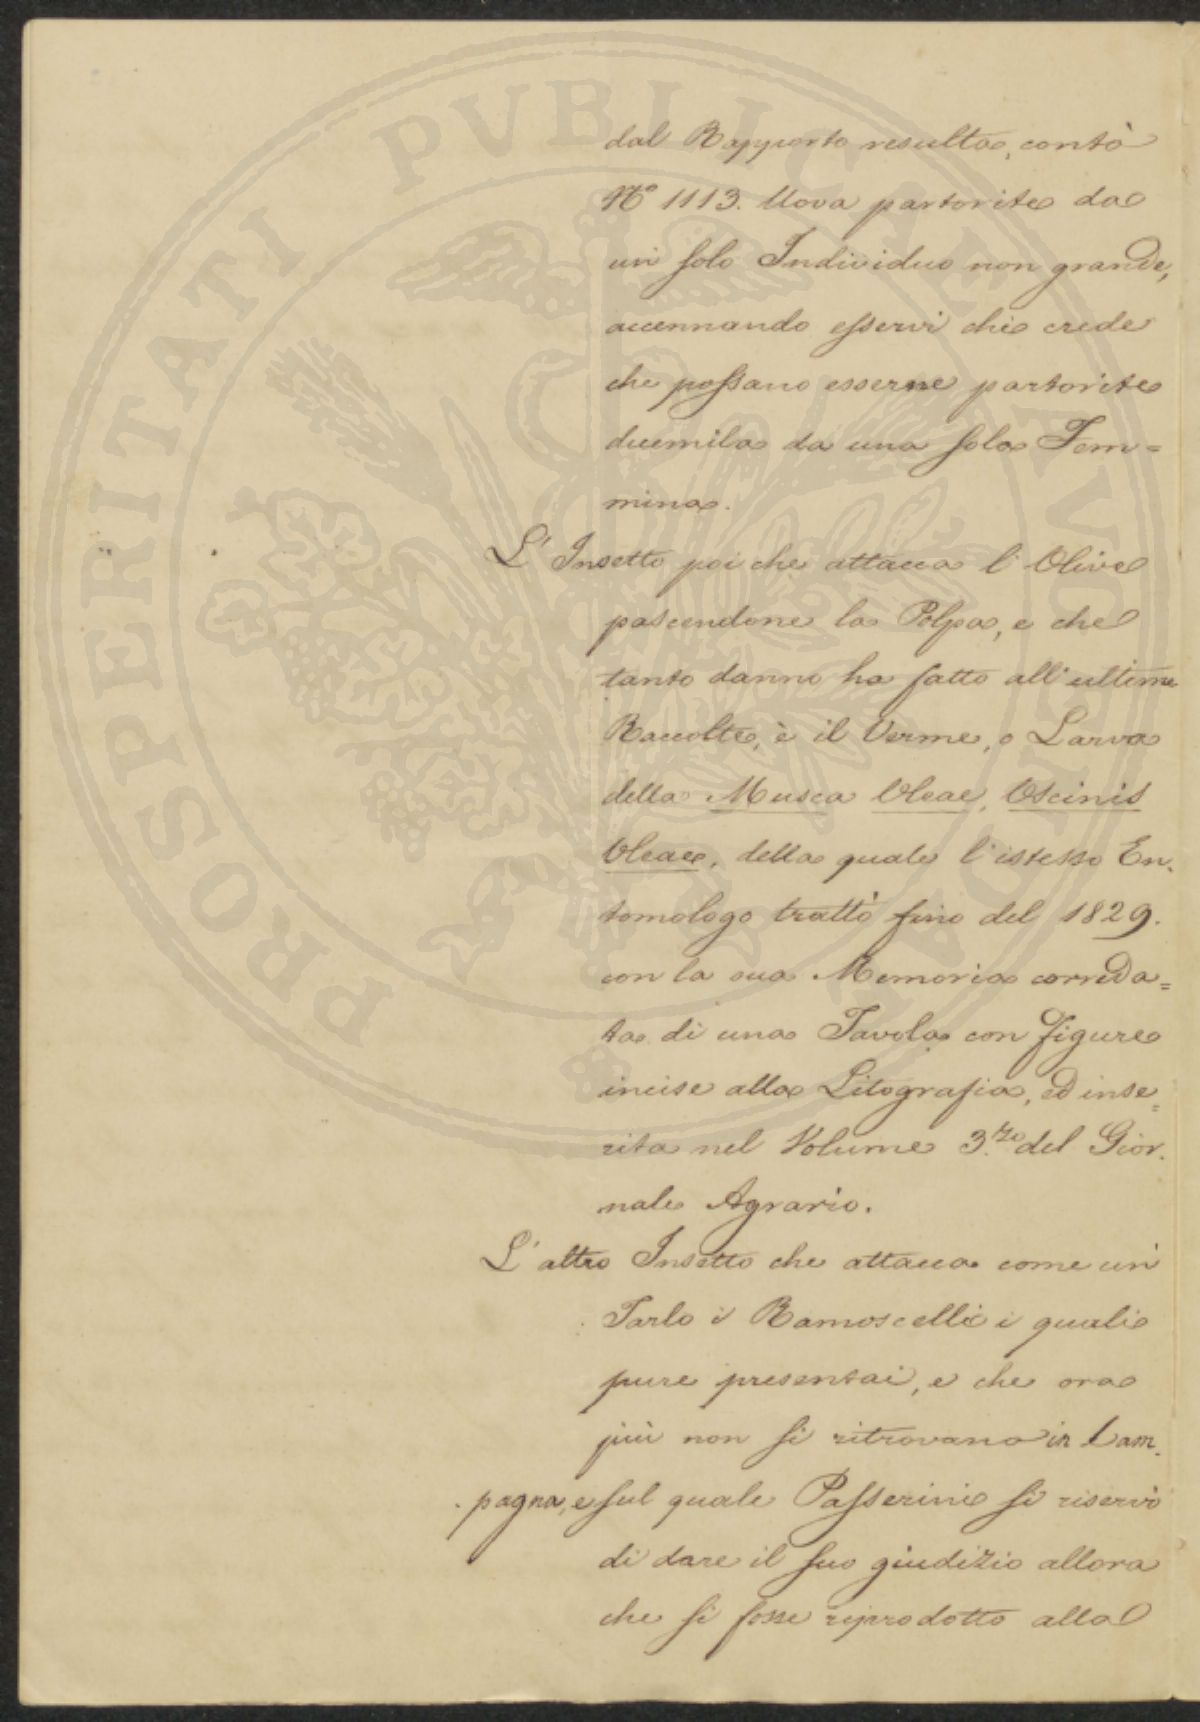 dal Rapporto resulta, contò
N.° 1113. Uova partorite da
un solo Individuo non grande,
accennando esservi chi crede
che possano esserne partorite
duemila da una sola Fem=
mina.
L'Insetto poi che attacca l'Olive
pascendone la Polpa, e che
tanto danno ha fatto all'ultime
Raccolte, è il Verme, o Larva
della Musca Oleae, Oscinis
Oleae, della quale l'istesso En.
tomologo trattò fino del 1829.
con la sua Memoria correda=
ta di una Tavola con figure
incise alla Litografia, ed inse=
rita nel Volume 3.zo del Gior.
nale Agrario.
L'altro Insetto che attacca come un
Tarlo i Ramoscelli i quali
pure presentai, e che ora
più non si ritrovano in Cam.
pagna, e sul quale Passerini si riservò
di dare il suo giudizio allora
che si fosse riprodotto alla
PROSPERITATI PVBLICAE AVGENDAE